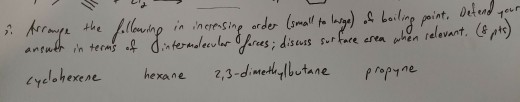 5. Arrange the following in increasing order (small to large) of boiling point. Defend your
answer in terms of intermolecular forces; discuss surface area when relevant. (8 pts)
cyclohexene hexane 2,3-dimethylbutane propyne